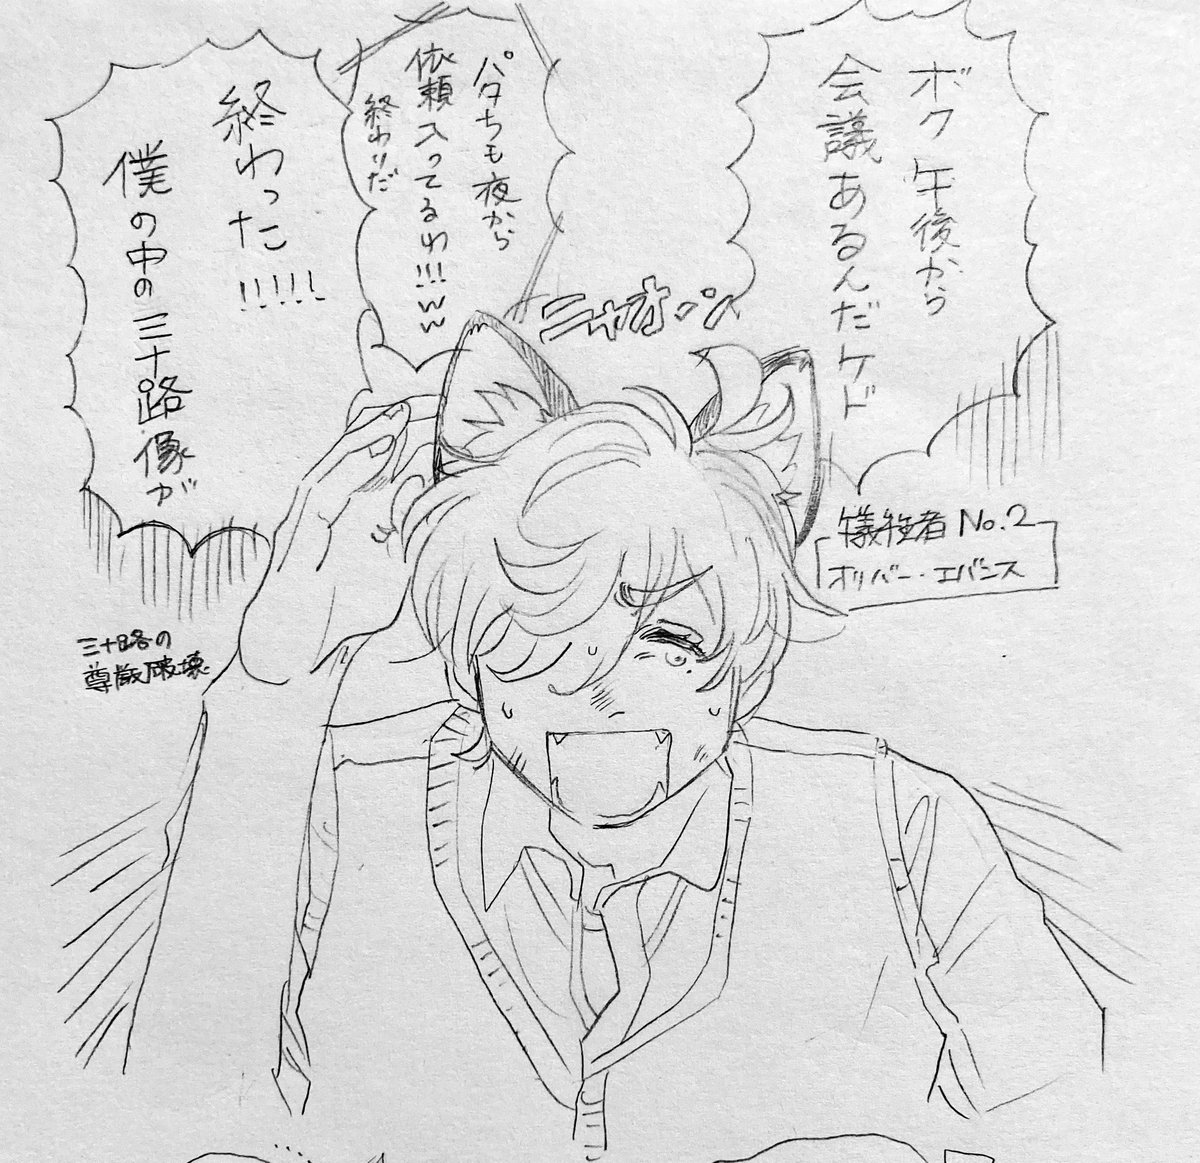 ボク午後から
会議あるんだケド
犠牲者No.2
オリバー・エバンス
ニャオ〜ン
パタちも夜から
依頼入ってるわ!!!ww
終わりだ
終わった!!!!!
僕の中の三十路像が
三十路の
尊厳破壊